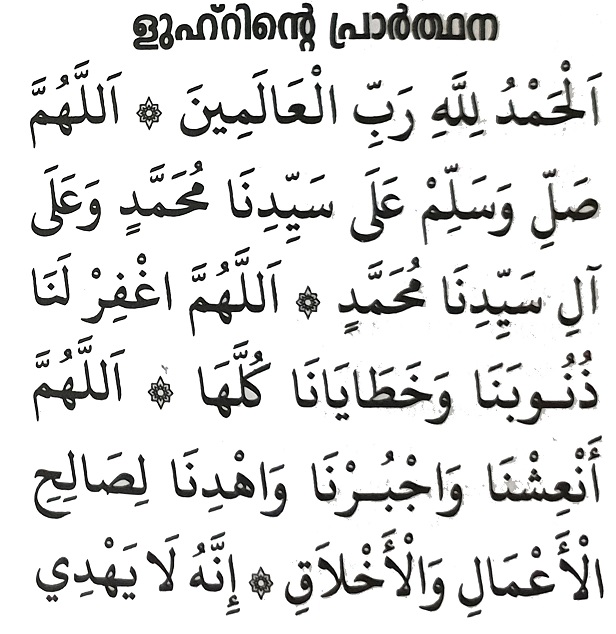 ളുഹ്റിന്റെ പ്രാർത്ഥന
اَلْحَمْدُ لِلَّهِ رَبِّ الْعَالَمِينَ ۞ اَللَّهُمَّ
صَلِّ وَسَلِّمْ عَلَى سَيِّدِنَا مُحَمَّدٍ وَعَلَى
آلِ سَيِّدِنَا مُحَمَّدٍ ۞ اَللَّهُمَّ اغْفِرْ لَنَا
ذُنُـوبَنَا وَخَطَايَانَا كُلَّهَا ۞ اَللَّهُمَّ
أَنْعِشْنَا وَاجْبُـرْنَا وَاهْدِنَا لِصَالِحِ
الْأَعْمَالِ وَالْأَخْلَاقِ ۞ إِنَّهُ لَا يَهْدِي